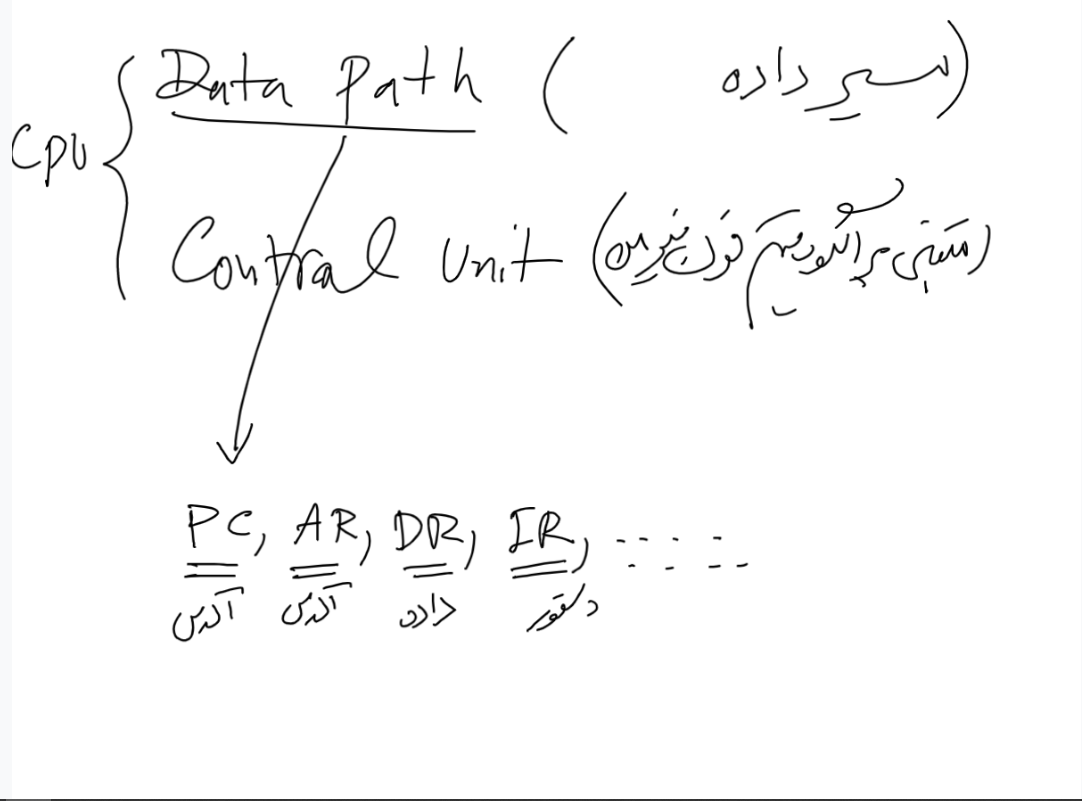 CPU
Data Path (مسیر داده)
Contral Unit (مبتنی بر الگوریتم فون نیومن)
PC, AR, DR, IR, .....
آدرس آدرس داده دستور